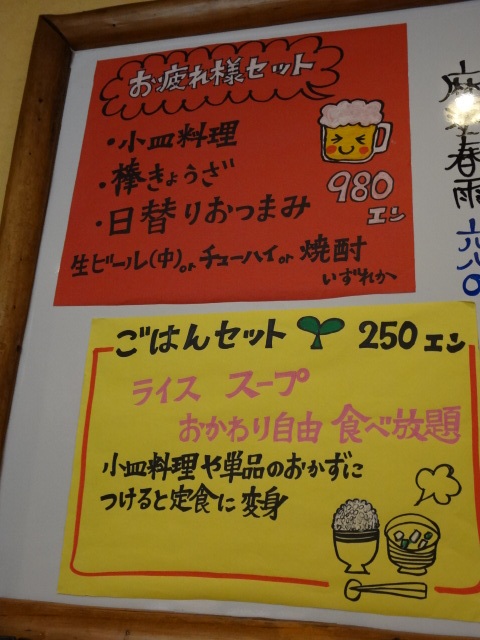 お疲れ様セット
・小皿料理
・棒きょうざ
・日替りおつまみ
980
エン
生ビール(中)orチューハイor焼酎
いずれか
ごはんセット 250エン
ライス スープ
おかわり自由 食べ放題
小皿料理や単品のおかずに
つけると定食に変身
春雨